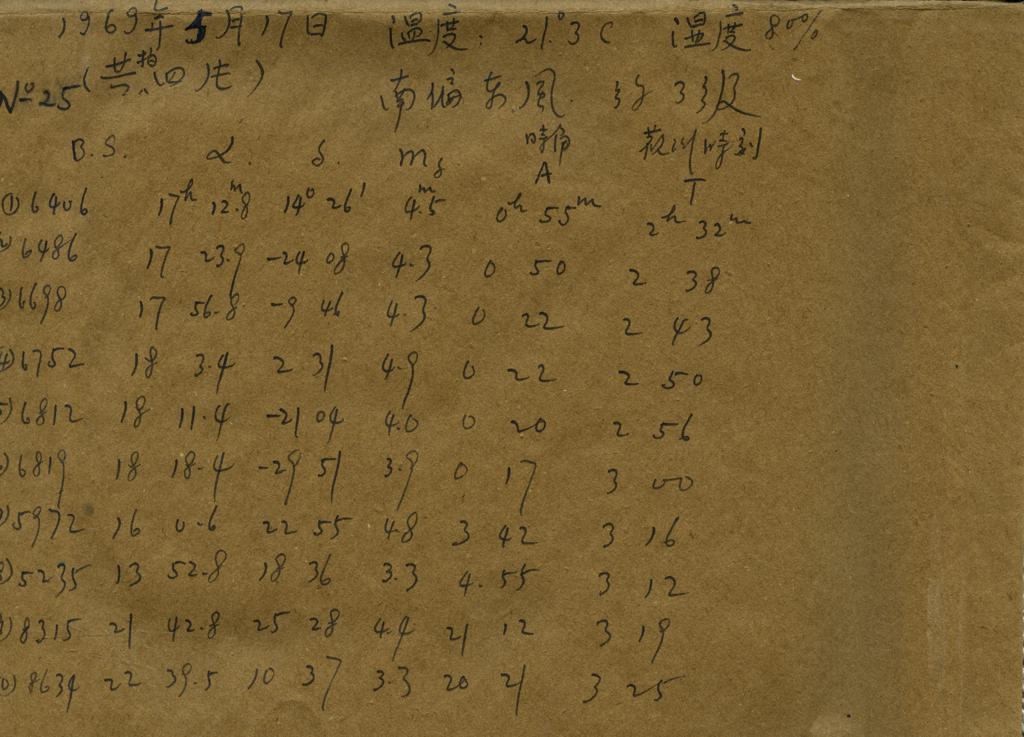 1969年5月17日 温度: 21°.3C 湿度 80%
№25 (共拍四片) 南偏东風 约3级
B.S. α. δ. m_s 時角 A 观测時刻 T
① 6406 17h 12m.8 14° 26' 4m.5 0h 55m 2h 32m
2) 6486 17 23.9 -24 08 4.3 0 50 2 38
3) 6698 17 56.8 -9 46 4.3 0 22 2 43
4) 6752 18 3.4 2 31 4.9 0 22 2 50
5) 6812 18 11.4 -21 04 4.0 0 20 2 56
) 6819 18 18.4 -29 51 3.9 0 17 3 00
) 5972 16 0.6 22 55 4.8 3 42 3 16
8) 5235 13 52.8 18 36 3.3 4.55 3 12
9) 8315 21 42.8 25 28 4.4 21 12 3 19
0) 8634 22 39.5 10 37 3.3 20 21 3 25